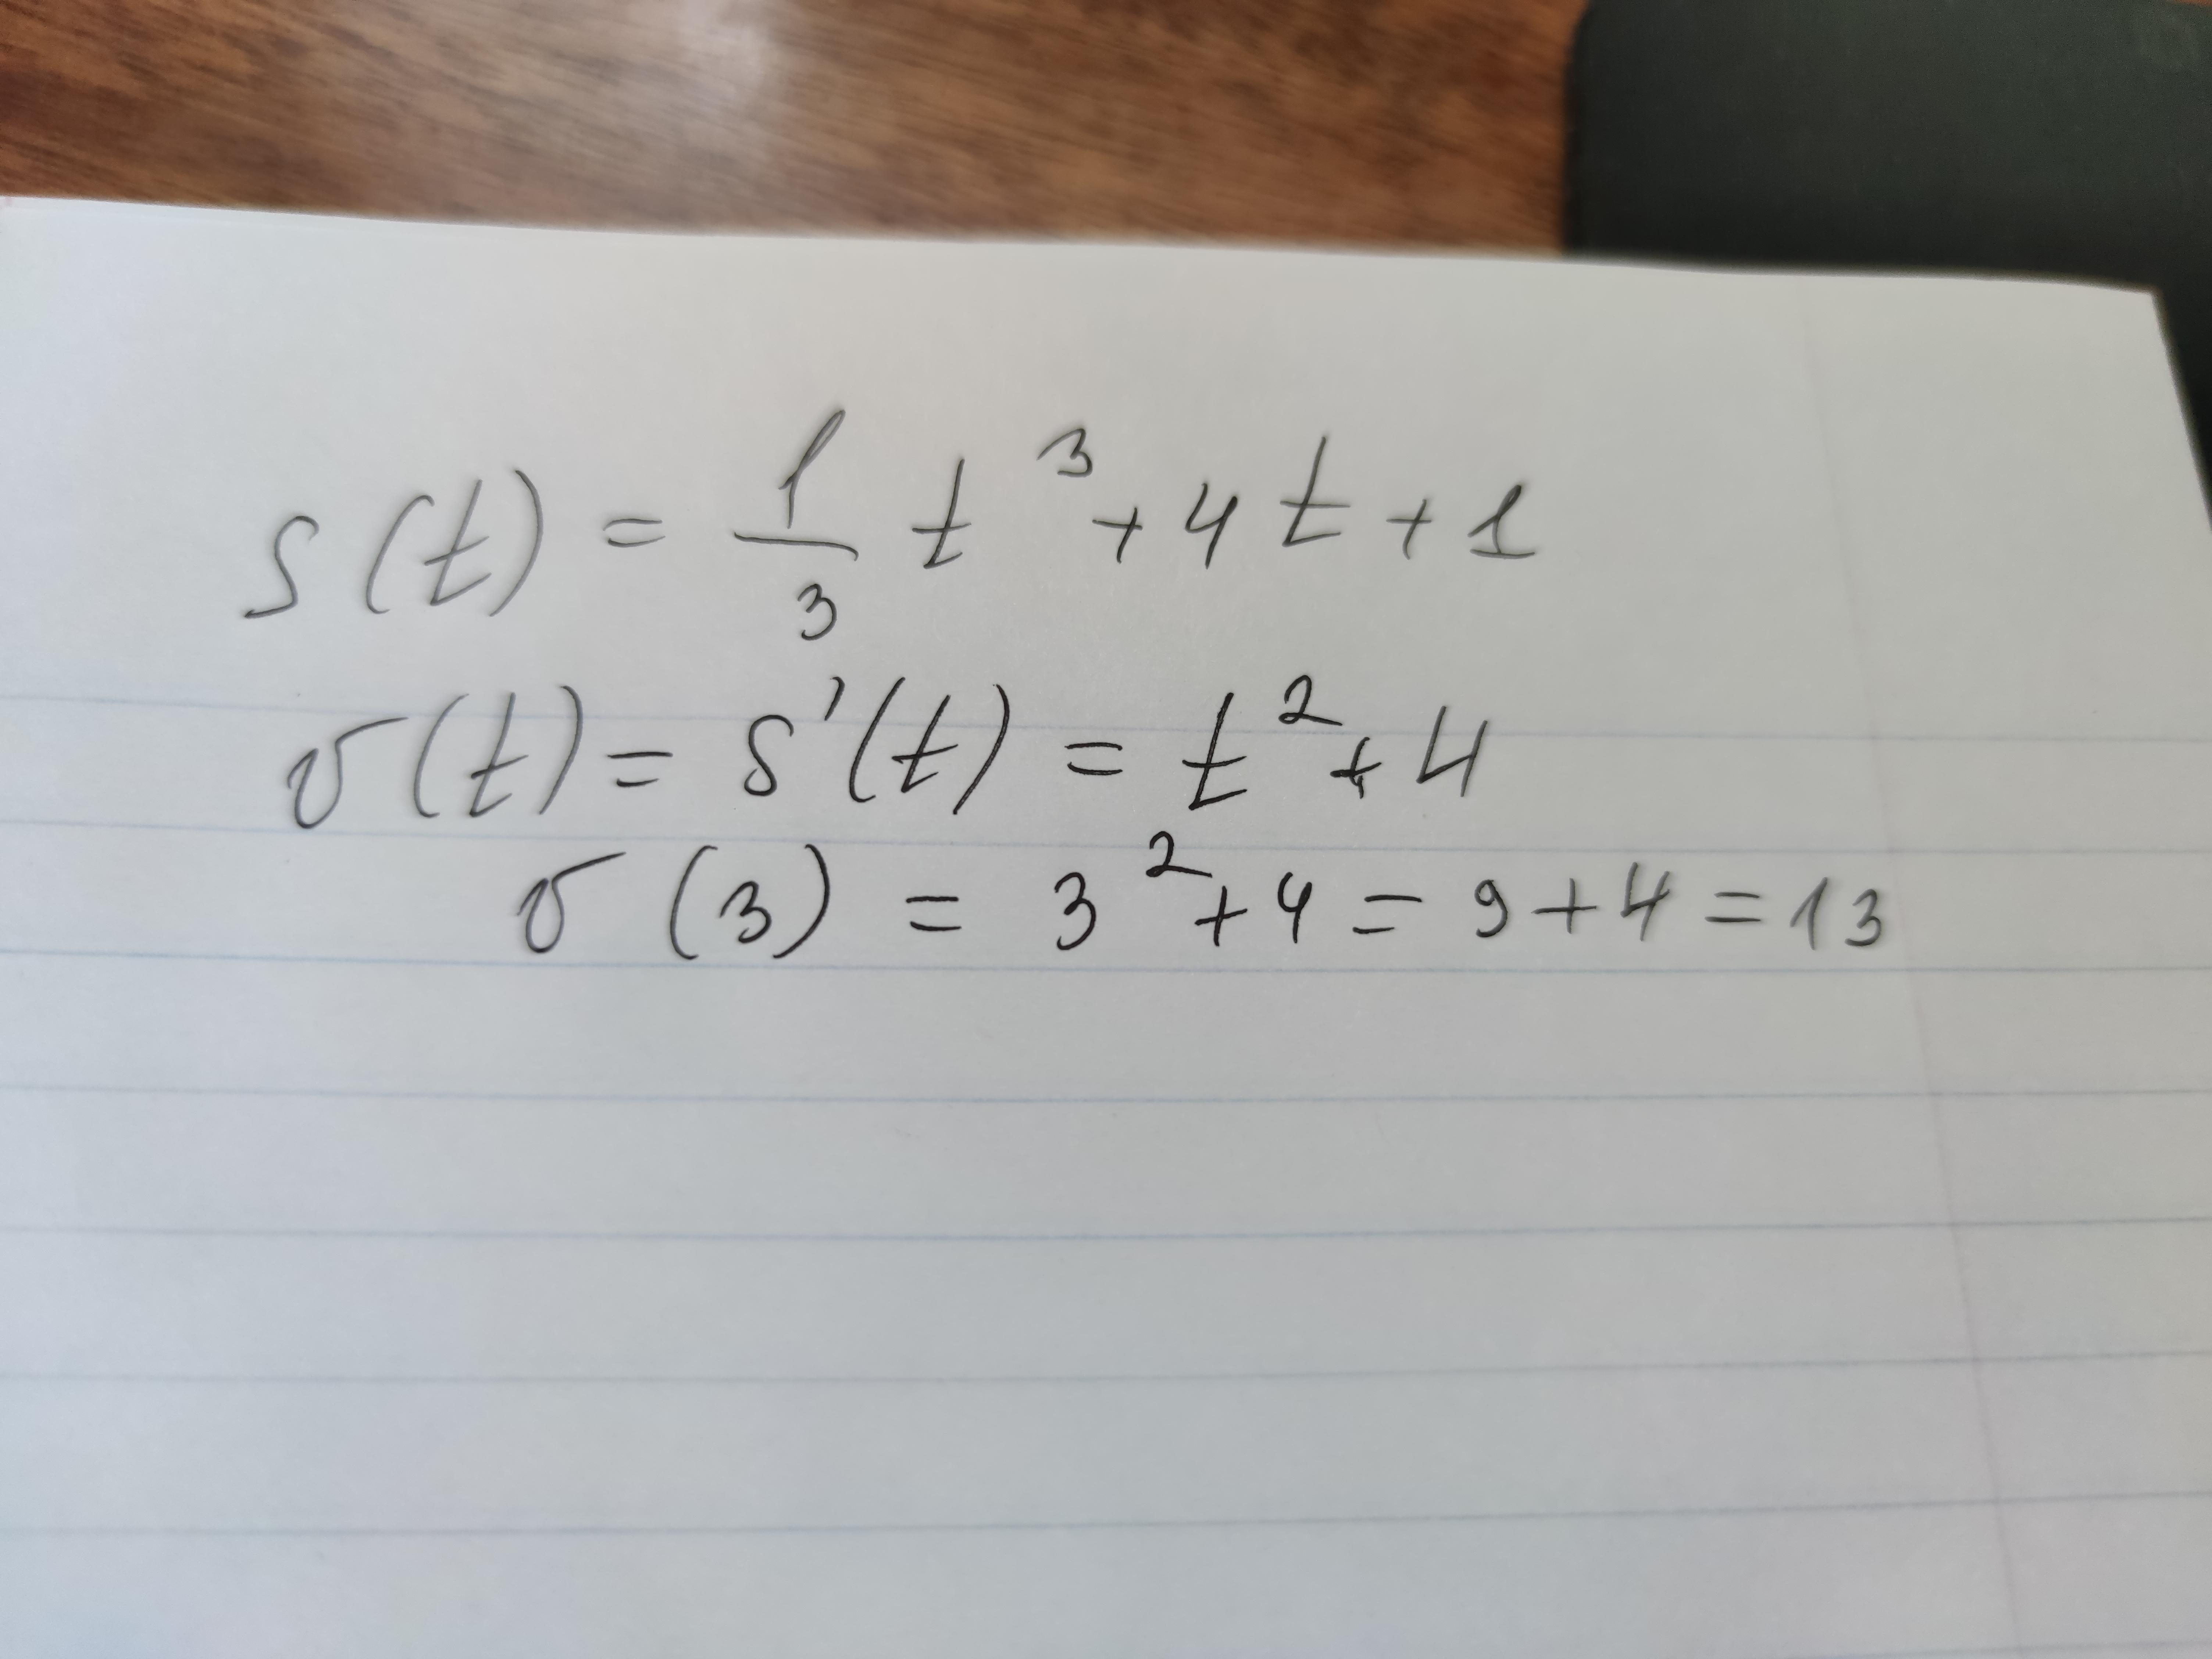 s(t) = 1/3 t³ + 4t + 1
v(t) = s'(t) = t² + 4
v(3) = 3² + 4 = 9 + 4 = 13